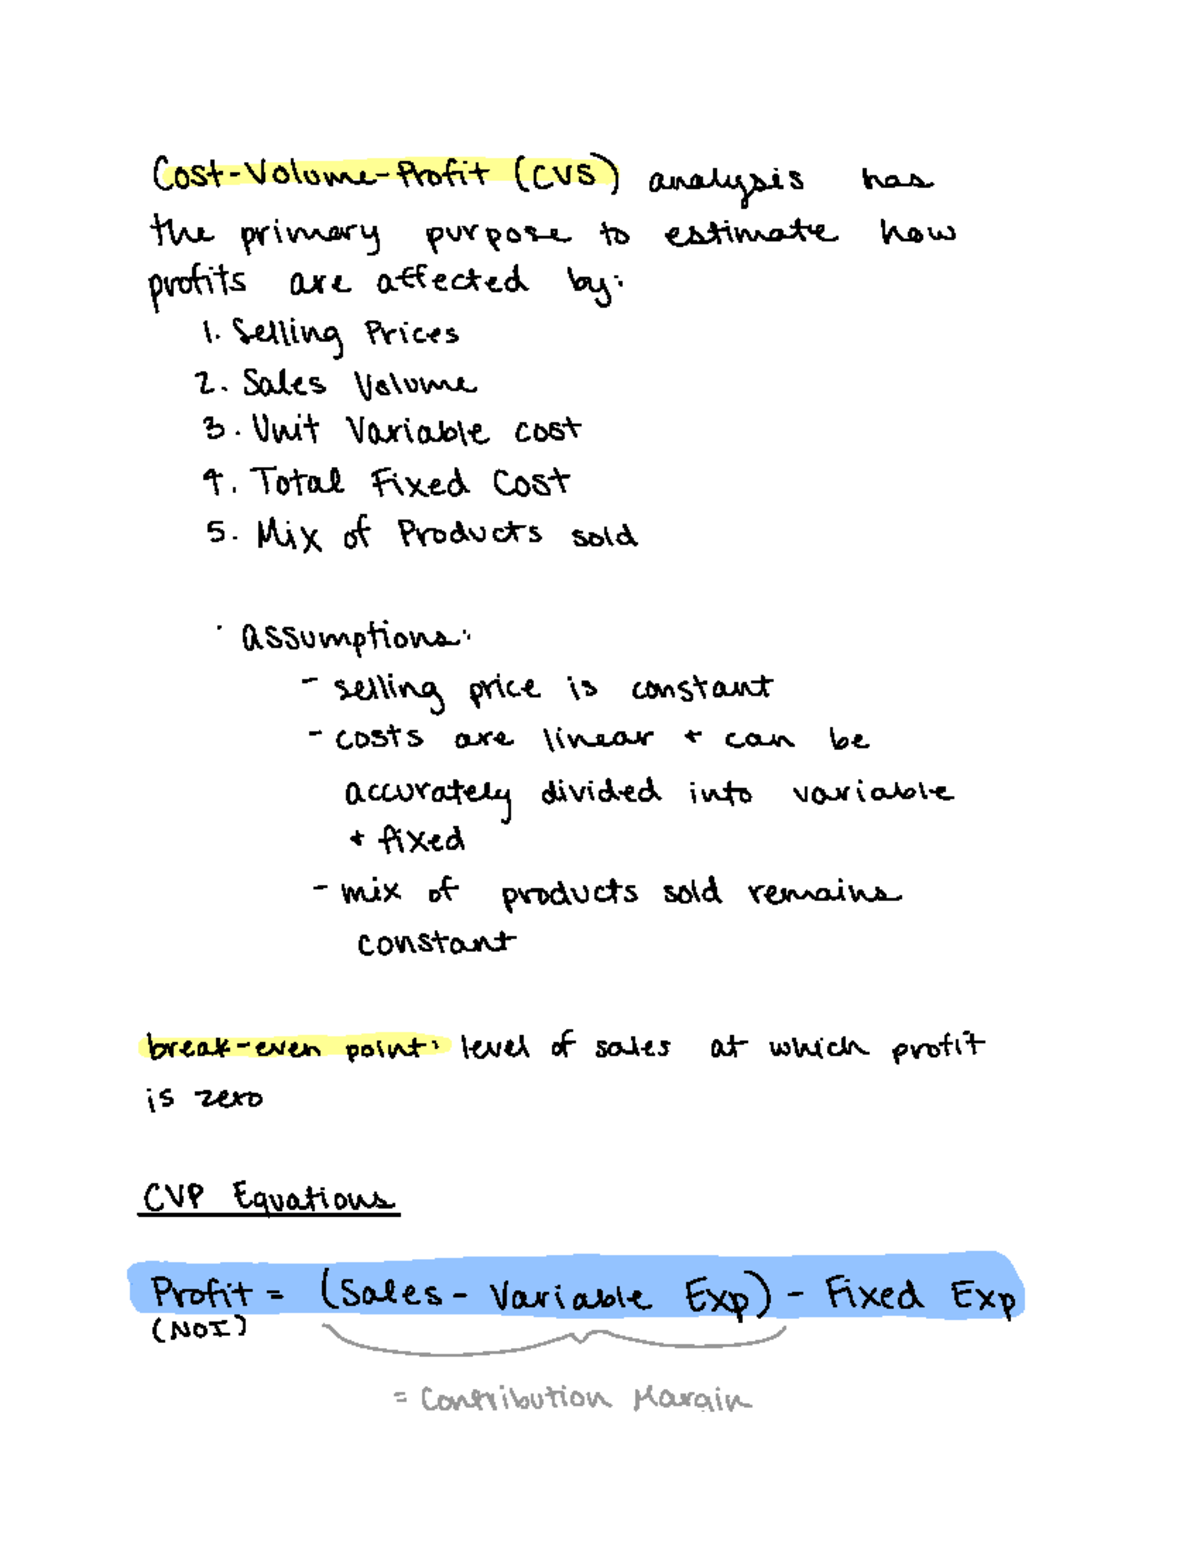 Cost-Volume-Profit (CVS) analysis has
the primary purpose to estimate how
profits are affected by:
1. Selling Prices
2. Sales Volume
3. Unit Variable cost
4. Total Fixed Cost
5. Mix of Products sold
· assumptions:
- selling price is constant
- costs are linear + can be
accurately divided into variable
+ fixed
- mix of products sold remains
constant
break-even point: level of sales at which profit
is zero
CVP Equations
Profit = (Sales - Variable Exp) - Fixed Exp
(NOI)
= Contribution Margin